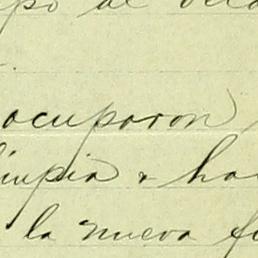 po al
ocuparon
limpia & ha
la nueva